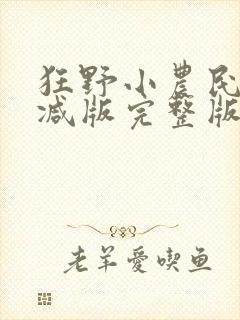 狂野小農民
减版完整版
老羊愛喫鱼